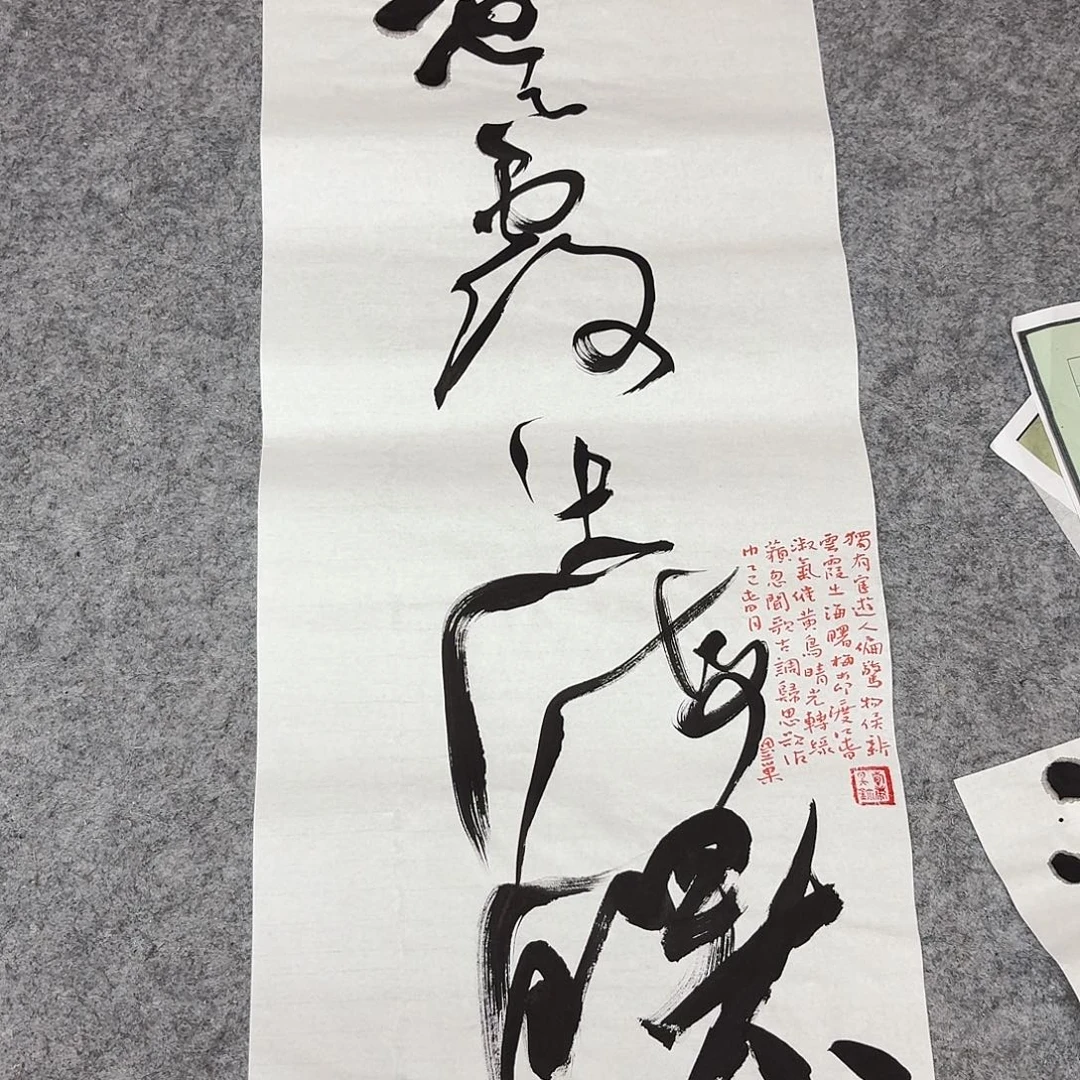 雲霞生海曙
獨有宦遊人偏驚物候新
雲霞出海曙梅柳渡江春
淑氣催黃鳥晴光轉綠
蘋忽聞歌古調歸思欲沾
巾乙巳春月 墨巢